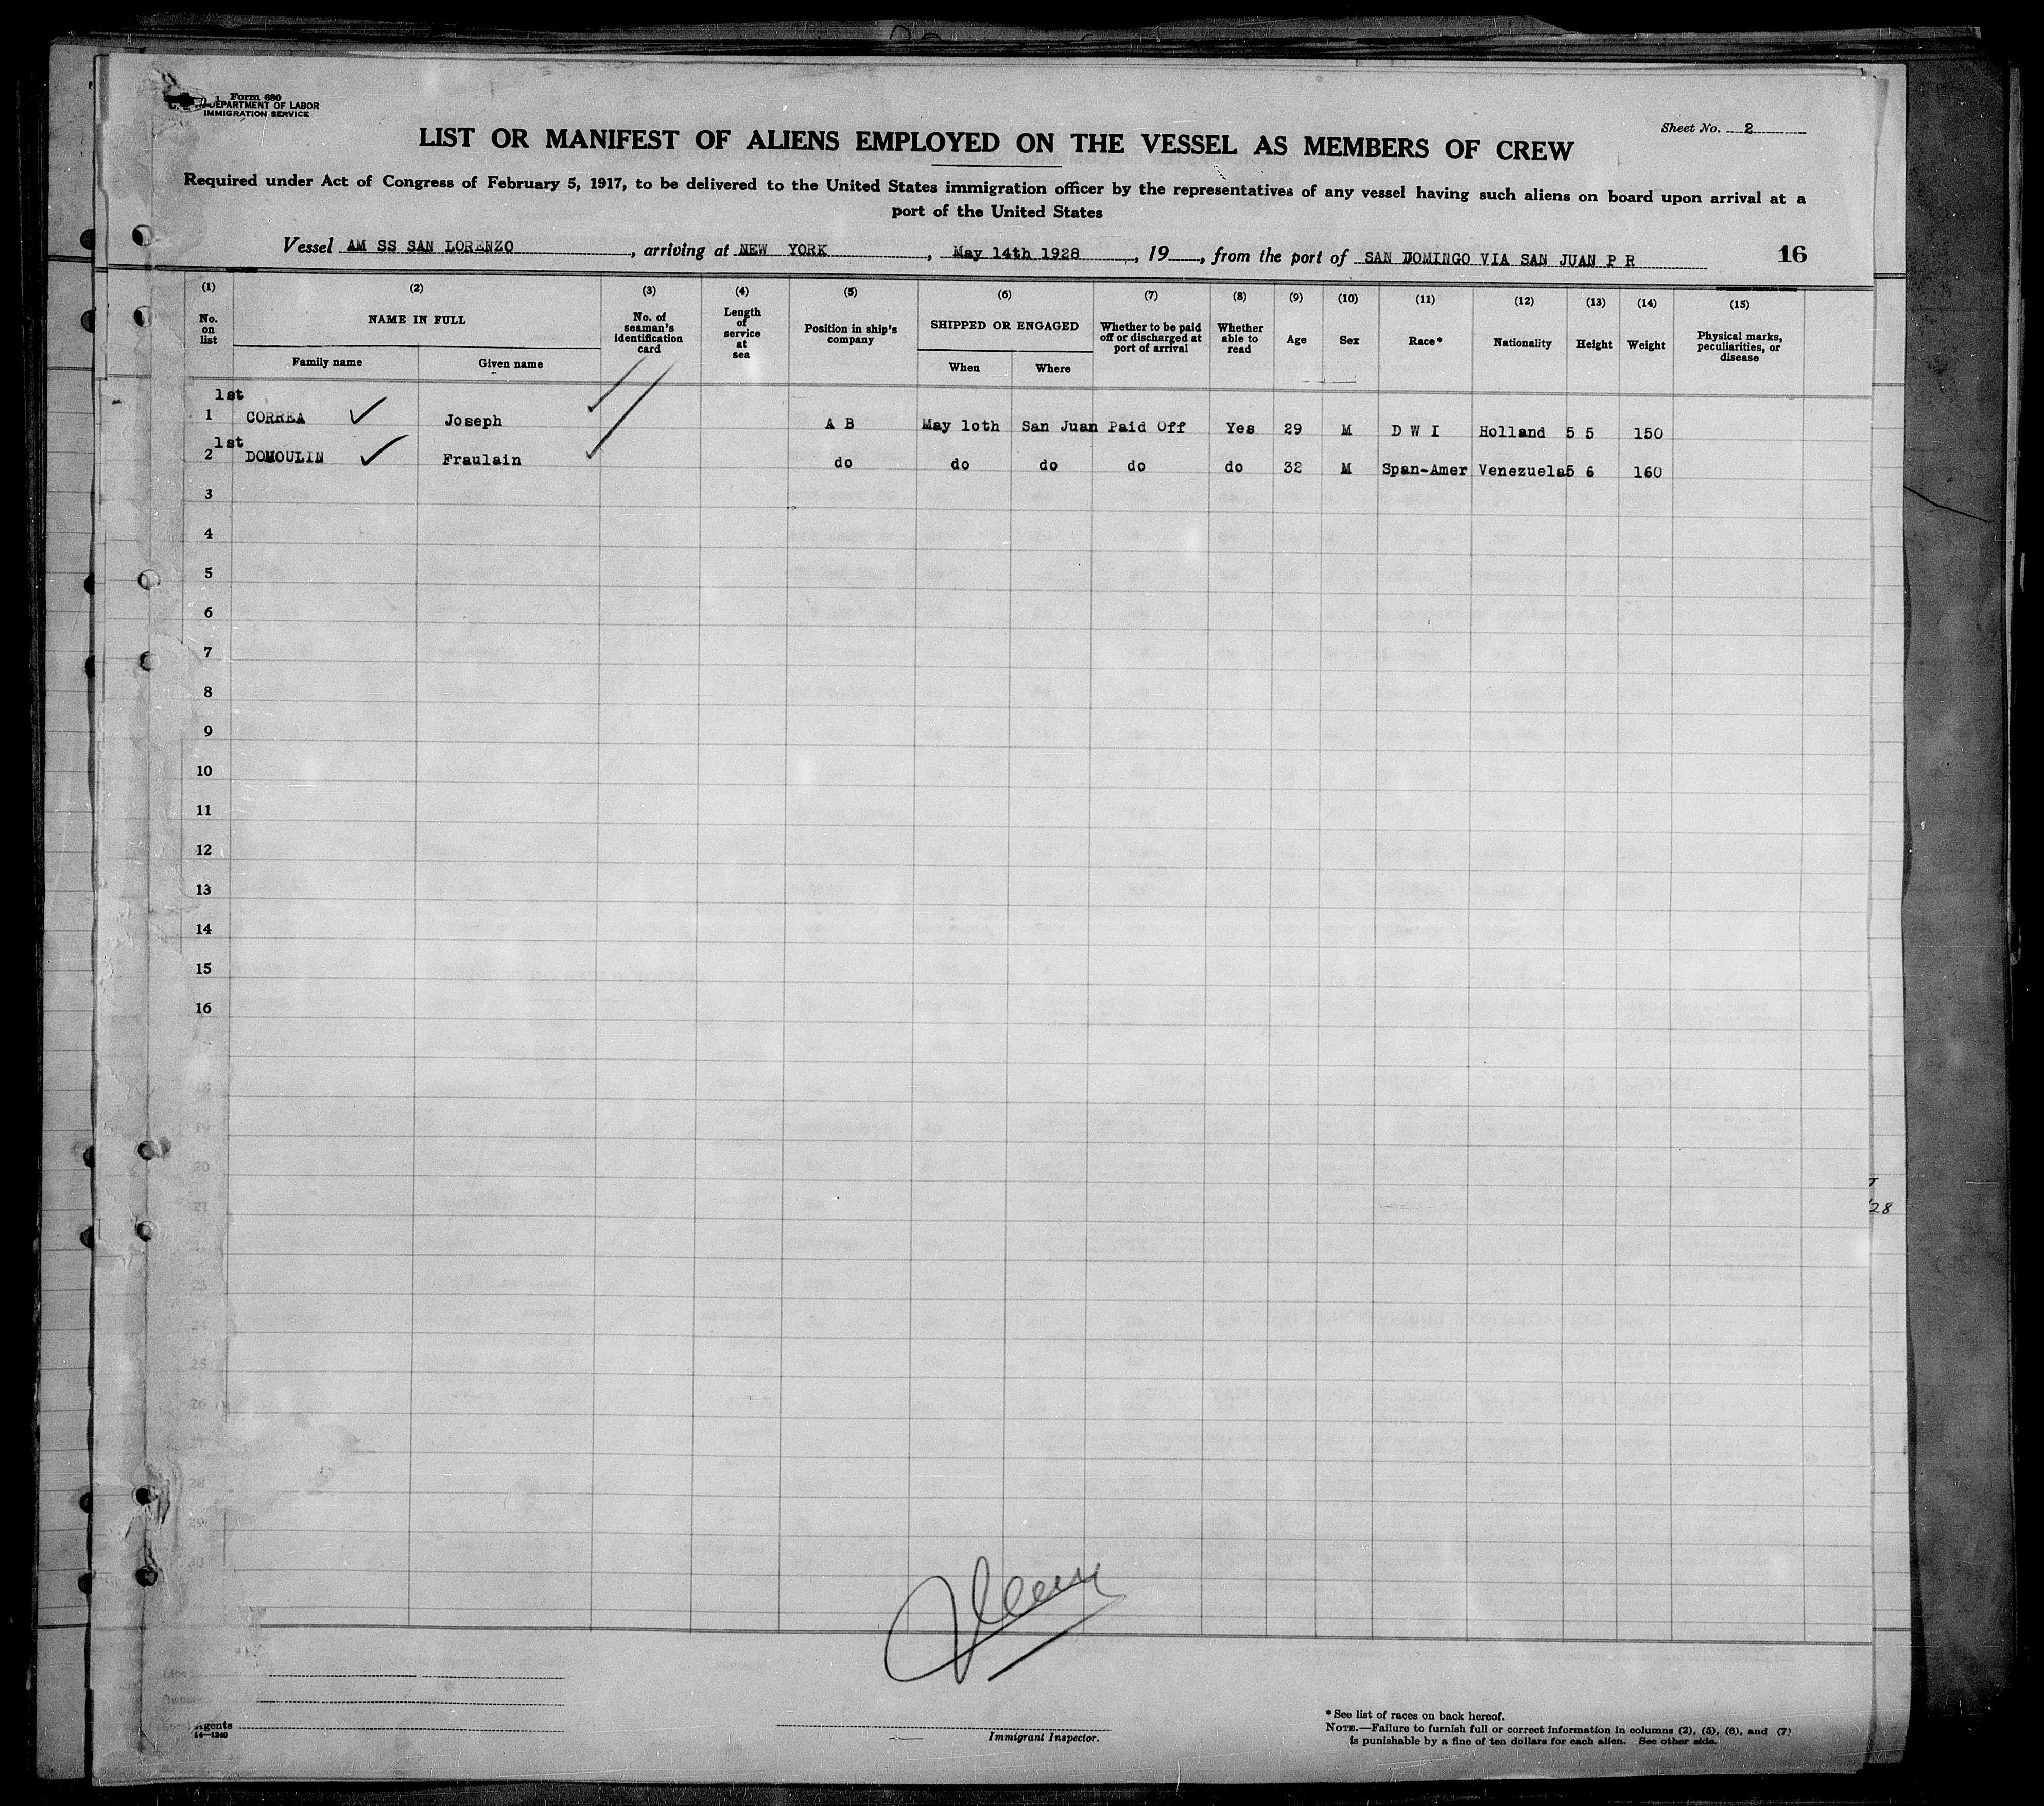 Form 680
U. S. DEPARTMENT OF LABOR
IMMIGRATION SERVICE
Sheet No. 2
LIST OR MANIFEST OF ALIENS EMPLOYED ON THE VESSEL AS MEMBERS OF CREW
Required under Act of Congress of February 5, 1917, to be delivered to the United States immigration officer by the representatives of any vessel having such aliens on board upon arrival at a
port of the United States
Vessel AM SS SAN LORENZO, arriving at NEW YORK, May 14th 1928, 19, from the port of SAN DOMINGO VIA SAN JUAN P R 16
(1) (2) (3) (4) (5) (6) (7) (8) (9) (10) (11) (12) (13) (14) (15)
No. on list NAME IN FULL Family name Given name No. of seaman's identification card Length of service at sea Position in ship's company SHIPPED OR ENGAGED When Where Whether to be paid off or discharged at port of arrival Whether able to read Age Sex Race* Nationality Height Weight Physical marks, peculiarities, or disease
1st
1 CORREA ✓ Joseph A B May loth San Juan Paid Off Yes 29 M D W I Holland 5 5 150
1st
2 DOMOULIN ✓ Fraulain do do do do do 32 M Span-Amer Venezuela 5 6 160
3
4
5
6
7
8
9
10
11
12
13
14
15
16
18
19
20
21
23
24
25
26
27
28
29
30
28
Agents
14—1240
Immigrant Inspector.
*See list of races on back hereof.
NOTE.—Failure to furnish full or correct information in columns (2), (5), (6), and (7)
is punishable by a fine of ten dollars for each alien. See other side.